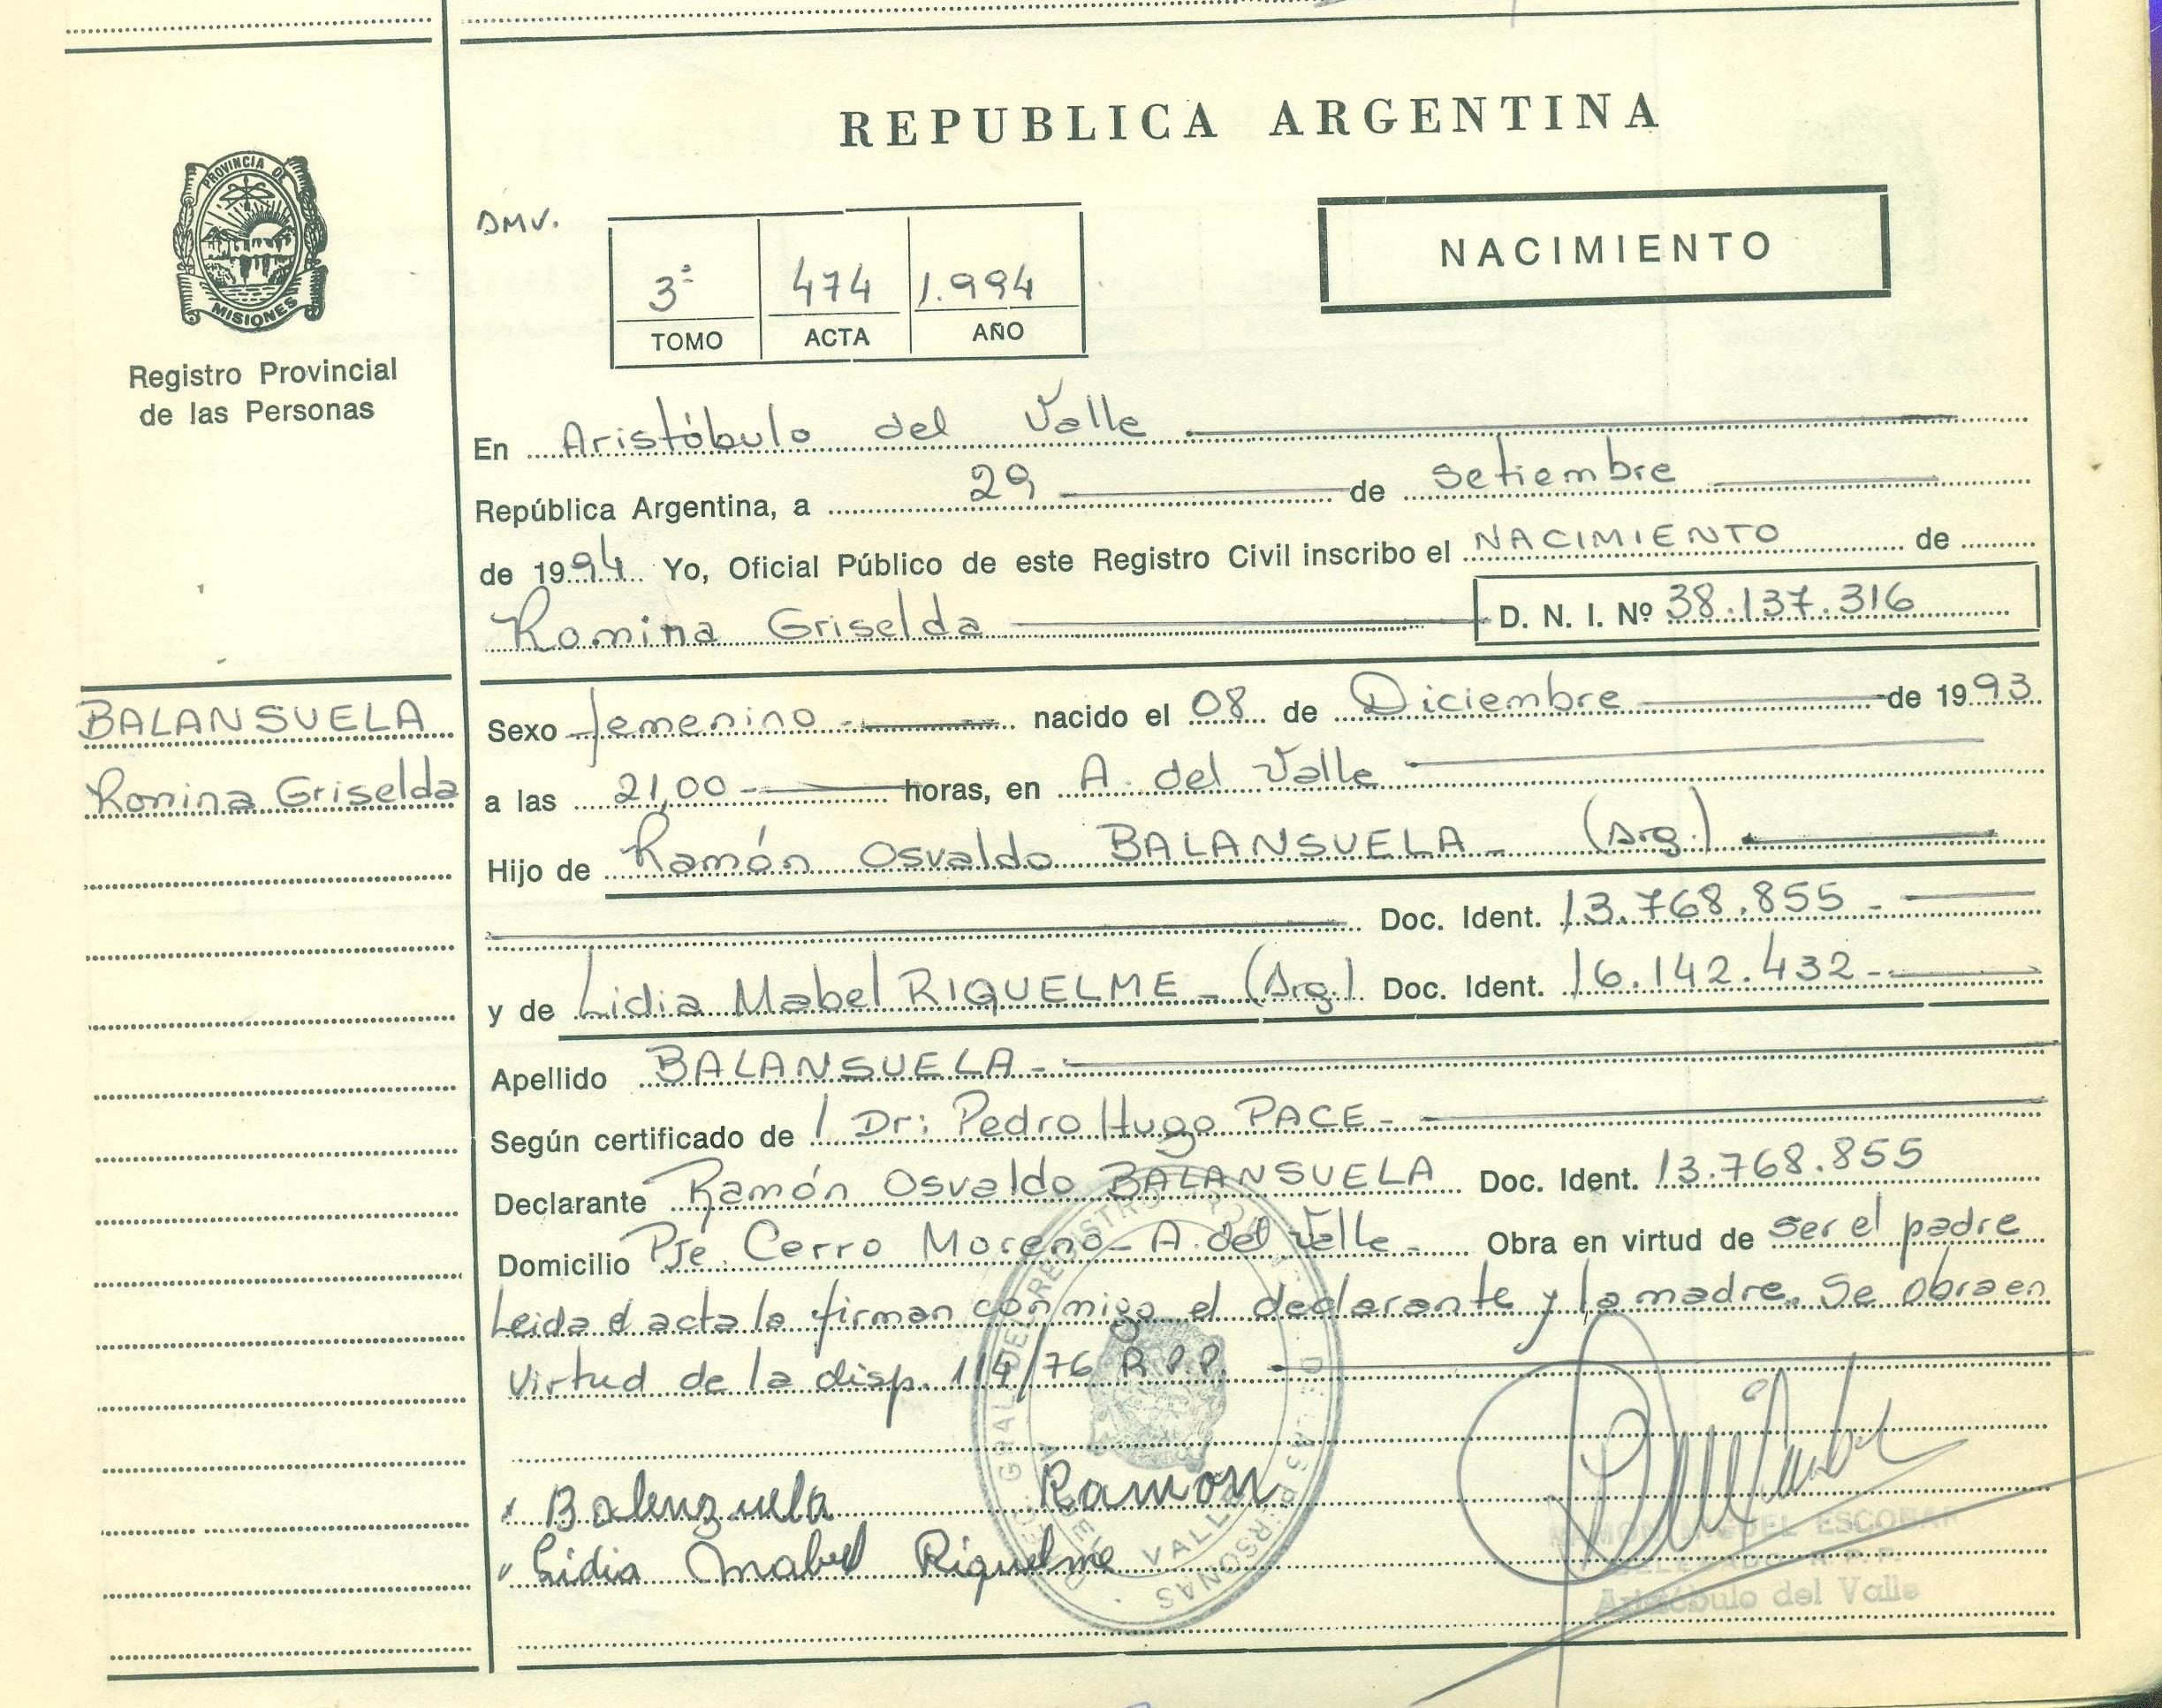 REPUBLICA ARGENTINA
PROVINCIA DE
MISIONES
Registro Provincial
de las Personas
DMV.
NACIMIENTO
3º 474 1.994
TOMO ACTA AÑO
En Aristóbulo del Valle
República Argentina, a 29 de setiembre
de 1994 Yo, Oficial Público de este Registro Civil inscribo el NACIMIENTO de
Romina Griselda D. N. I. Nº 38.137.316
BALANSUELA
Romina Griselda
Sexo femenino nacido el 08 de Diciembre de 1993
a las 21,00 horas, en A. del Valle
Hijo de Ramón Osvaldo BALANSUELA (Arg.)
Doc. Ident. 13.768.855
y de Lidia Mabel RIQUELME (Arg.) Doc. Ident. 16.142.432
Apellido BALANSUELA
Según certificado de / Dr: Pedro Hugo PACE
Declarante Ramón Osvaldo BALANSUELA Doc. Ident. 13.768.855
Domicilio Pje. Cerro Moreno - A. del Valle Obra en virtud de ser el padre
Leida el acta la firman conmigo el declarante y la madre. Se obra en
virtud de la disp. 114/76 R.P.P.
Balenzuela Ramon
Lidia Mabel Riquelme
MIGUEL ESCOBAR
DELEGADO R.P.P.
Aristóbulo del Valle